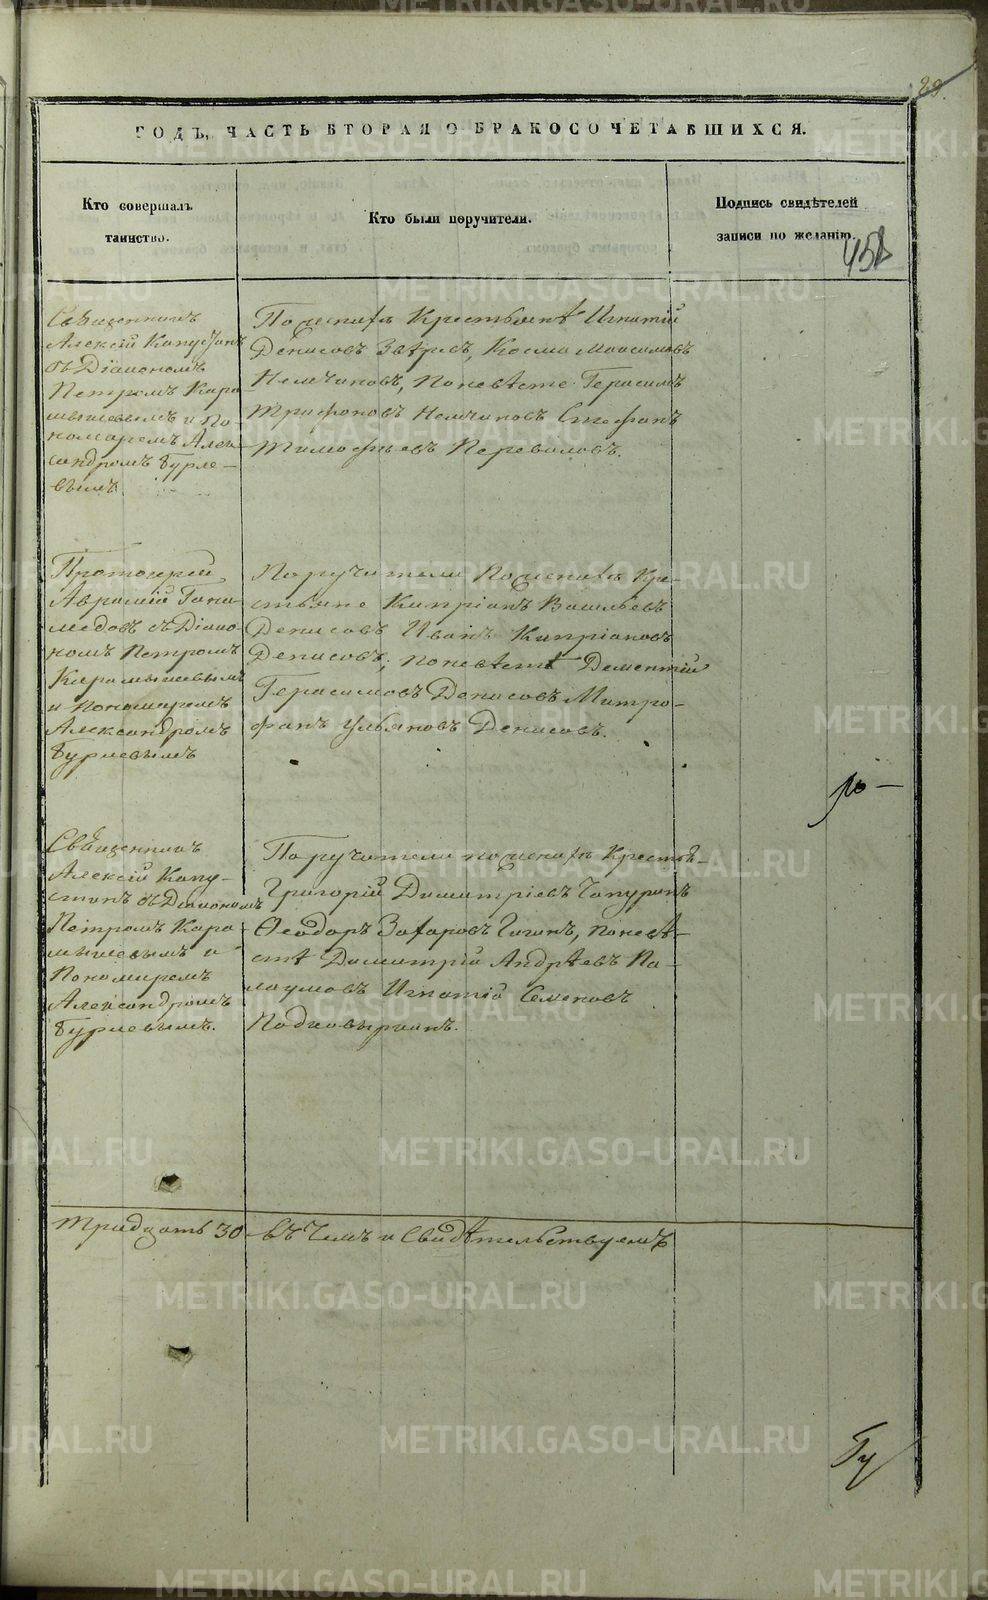 METRIKI.GASO-URAL.RU
29.
ГОДЪ, ЧАСТЬ ВТОРАЯ О БРАКОСОЧЕТАВШИХСЯ.
Кто совершалъ
таинство.
Кто были поручители.
Подпись свидѣтелей
записи по желанію.
Священникъ
Алексій Капустинъ
съ Діакономъ
Петромъ Кара
мышевымъ и По-
номаремъ Алек-
сандромъ Бурле-
вымъ.
По женихѣ Крестьянѣ Игнатій
Денисовъ Звѣревъ, Косма Максимовъ
Немчиновъ, по невѣсте Герасимъ
Трифоновъ Немчиновъ Стефанъ
Тимофѣевъ Переваловъ.
Протоіерей
Аврамій
съ Діако-
номъ Петромъ
Карамышевымъ
и Пономаремъ
Александромъ
Бурлевымъ
Поручители По женихѣ Кре-
стьяне Кипріанъ Васильевъ
Денисовъ Иванъ Кипріановъ
Денисовъ; по невѣстѣ Дементій
Герасимовъ Денисовъ Митро-
фанъ Ульяновъ Денисовъ.
Священникъ
Алексій Капу-
стинъ съ Діакономъ
Петромъ Кара
мышевымъ и
Пономаремъ
Александромъ
Бурлевымъ.
Поручители по женихѣ Крестья-
Григорій Димитріевъ
Ѳеодоръ Захаровъ по невѣ-
стѣ Димитрій Андрѣевъ Па-
Игнатій Семеновъ
Тридцать 30
въ чемъ и Свидѣтельствуемъ